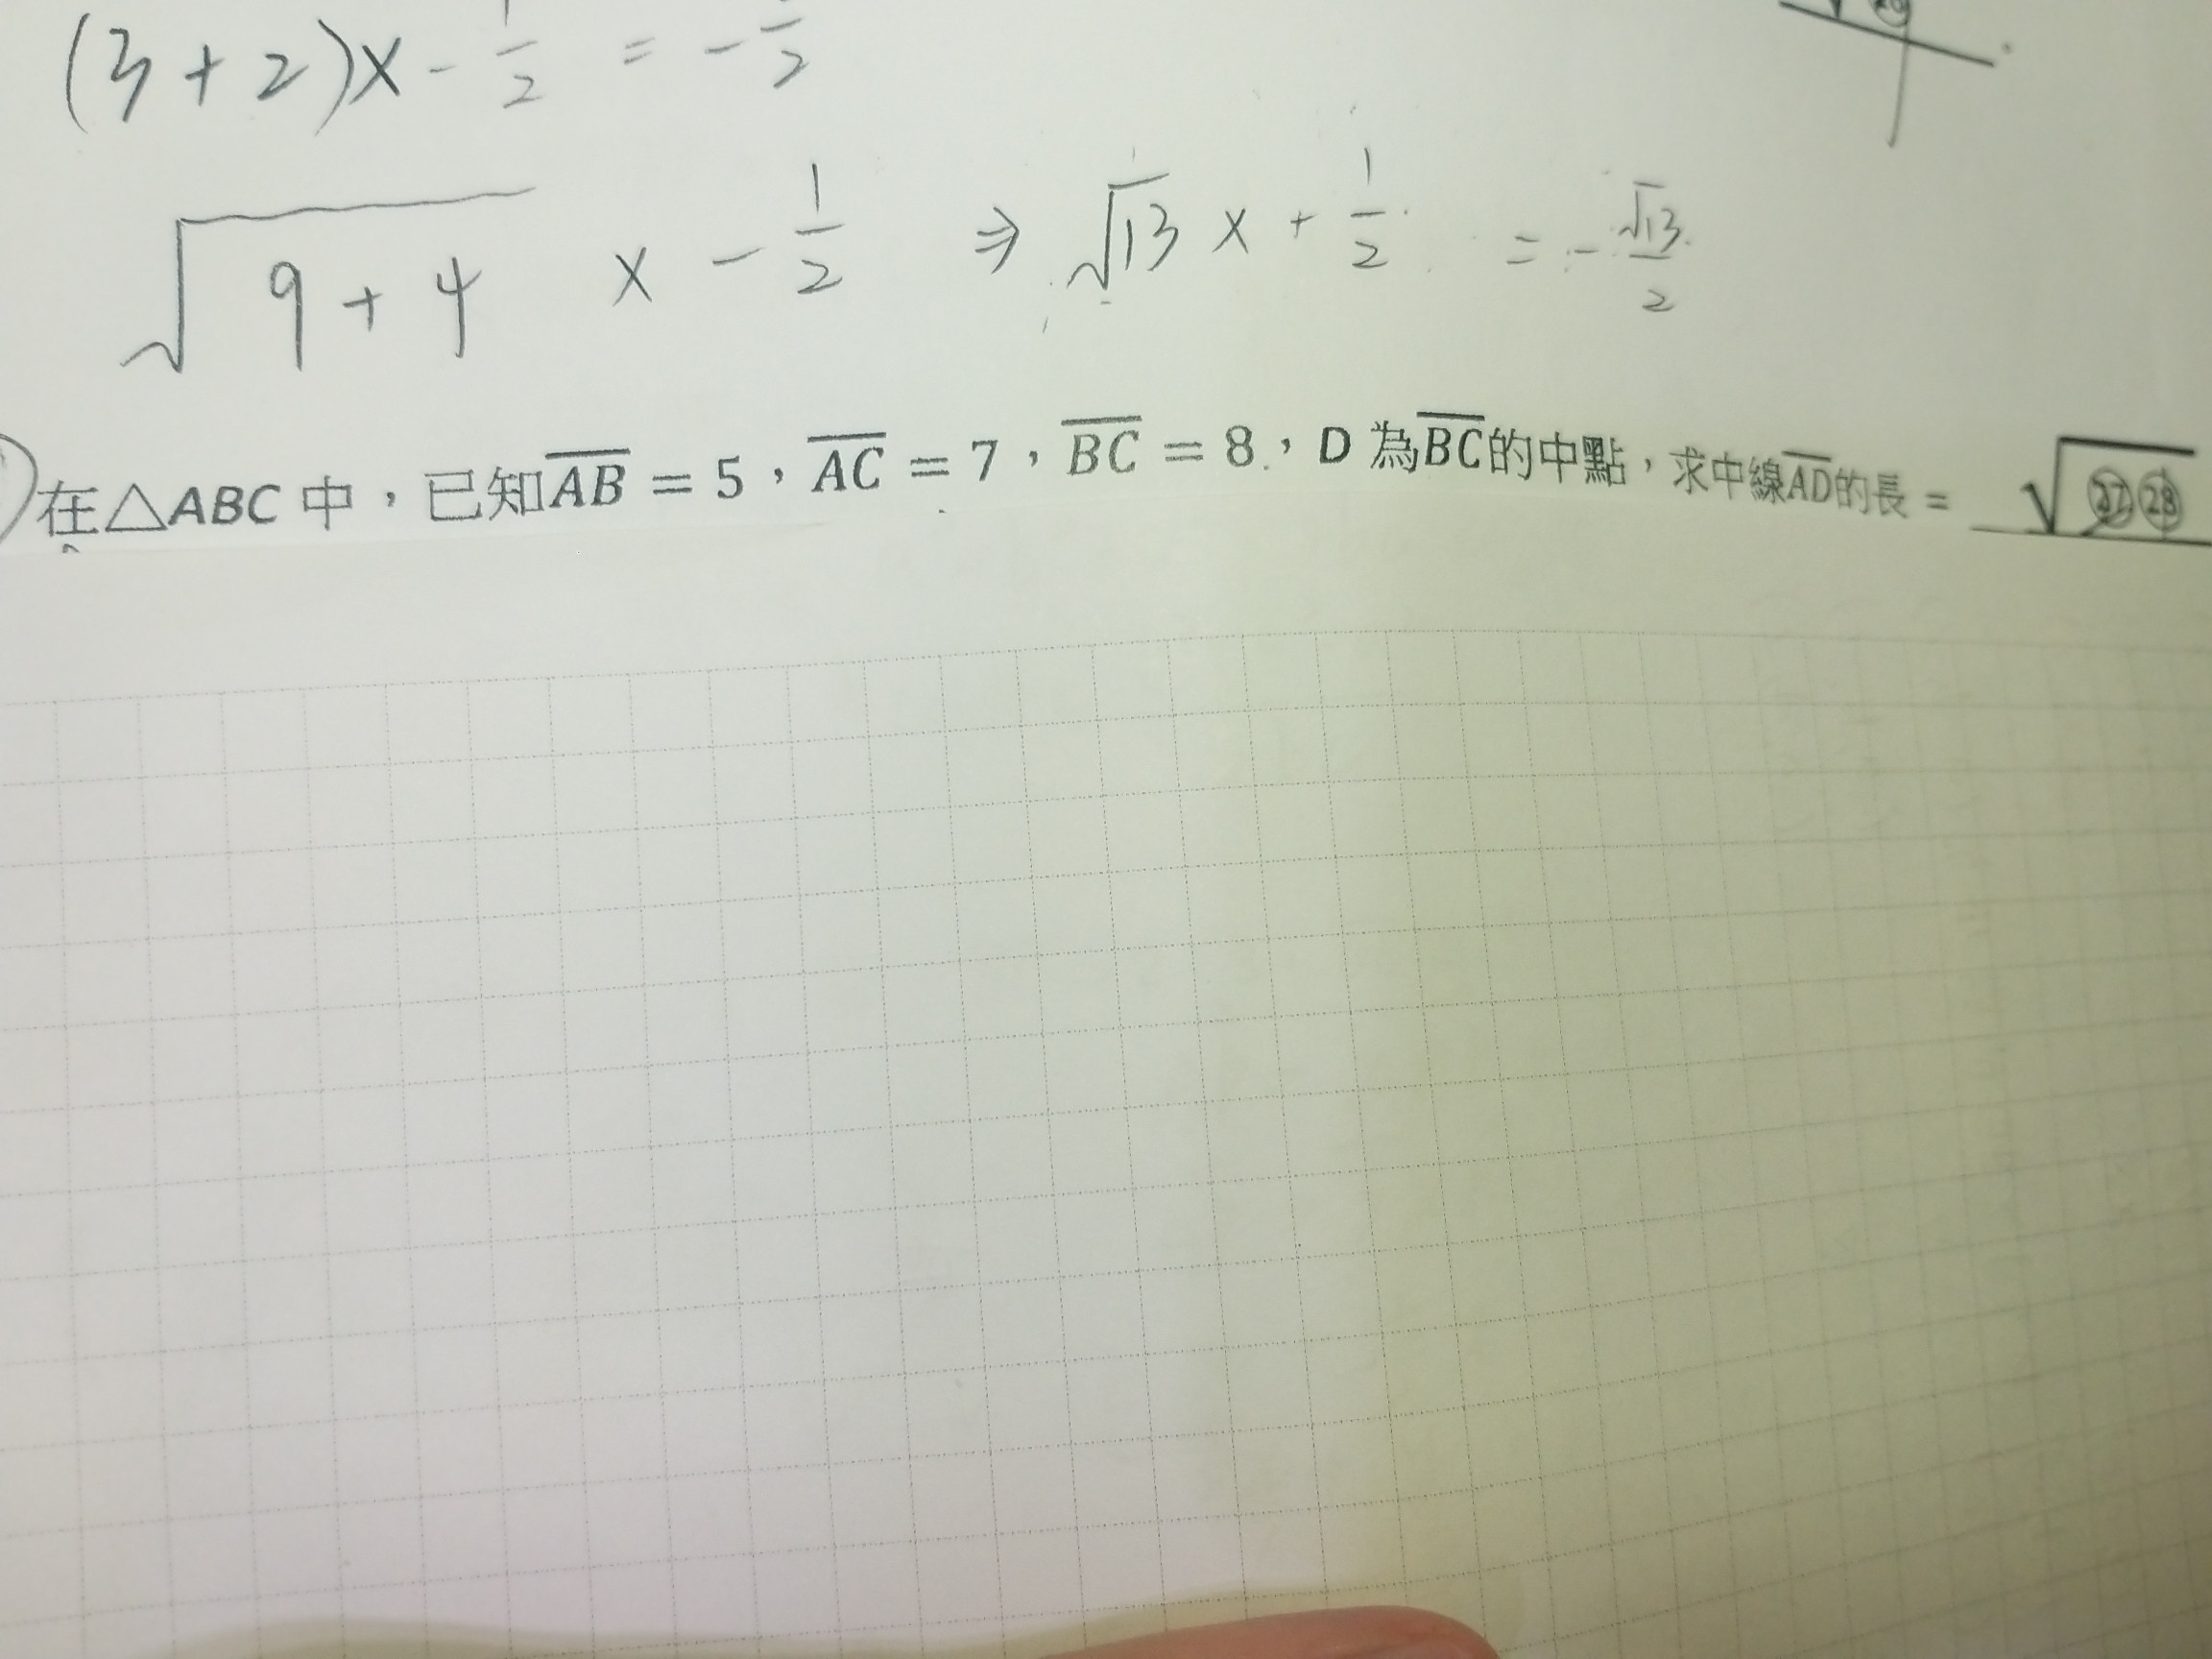 (3+2)x - 1/2 = - 1/2
√(9+4) × - 1/2 ⇒ √13 × + 1/2 = - √13/2
在△ABC 中，已知AB = 5，AC = 7，BC = 8，D 為BC的中點，求中線AD的長 = √㉗㉘